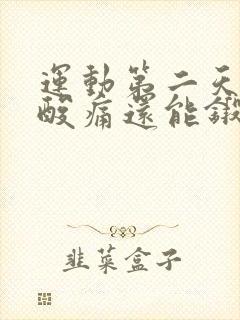 運動第二天
酸痛還能鍛
韭菜盒子